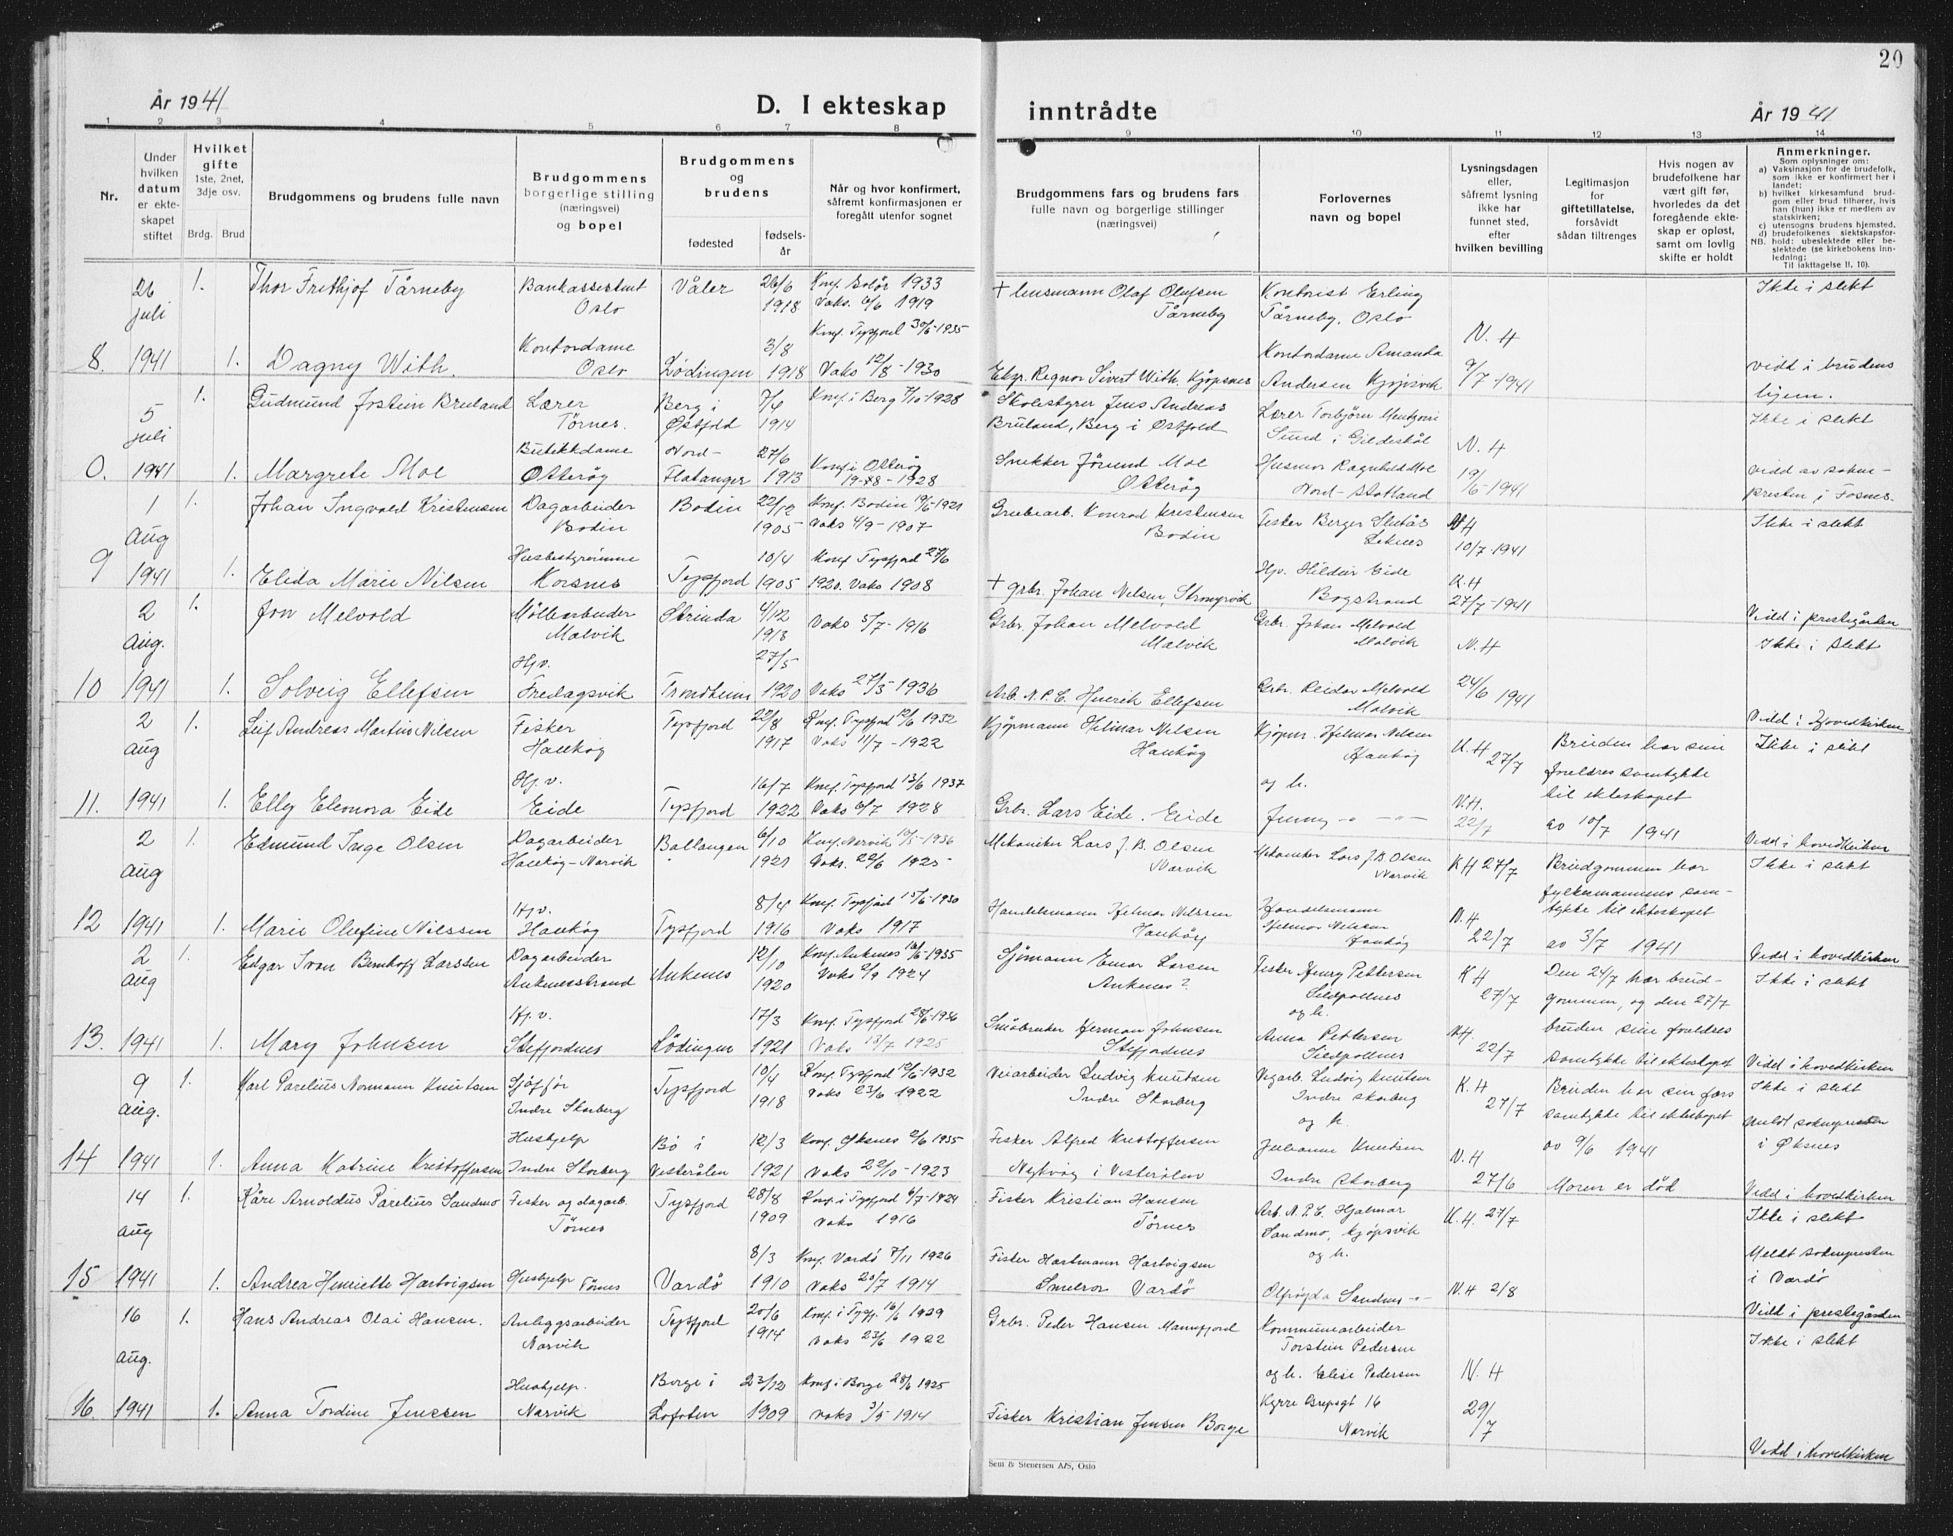 20
År 1941
D. I ekteskap
inntrådte
År 1941
1 2 3 4 5 6 7 8 9 10 11 12 13 14
Nr.
Under
hvilken
datum
er ekte-
skapet
stiftet
Hvilket
gifte
1ste, 2net,
3dje osv.
Brdg. Brud
Brudgommens og brudens fulle navn
Brudgommens
borgerlige stilling
(næringsvei)
og bopel
Brudgommens
og
brudens
fødested
fødsels-
år
Når og hvor konfirmert,
såfremt konfirmasjonen er
foregått utenfor sognet
Brudgommens fars og brudens fars
fulle navn og borgerlige stillinger
(næringsvei)
Forlovernes
navn og bopel
Lysningsdagen
eller,
såfremt lysning
ikke har
funnet sted,
efter
hvilken bevilling
Legitimasjon
for
giftetillatelse,
forsåvidt
sådan tiltrenges
Hvis nogen av
brudefolkene har
vært gift før,
hvorledes da det
foregående ekte-
skap er opløst,
samt om lovlig
skifte er holdt
Anmerkninger.
Som oplysninger om:
a) Vaksinasjon for de brudefolk,
som ikke er konfirmert her i
landet;
b) hvilket kirkesamfund brud-
gom eller brud tilhører, hvis
han (hun) ikke er medlem av
statskirken;
c) utensogns brudens hjemsted.
d) brudefolkenes slektskapsfor-
NB. hold: ubeslektede eller be-
slektede (se kirkebokens inn-
ledning;
Til iakttagelse II, 10).
26 juli 1. Thor Frithjof Tårneby Bankassistent Oslo Våler 26/6 1918 Konf. Solør 1933 Vaks. 6/6 1919 + lensmann Olaf Olufsen Tårneby Kontorist Erling Tårneby, Oslo N. H Ikke i slekt
8. 1941 1. Dagny With. Kontordame Oslo Lødingen 3/8 1918 Konf. Tysfjord 30/6-1935 Vaks 12/8-1930 Eksp. Regnor Sivert With. Kjøpsnes Kontordame Amanda Andersen Kjøpsvik 9/7-1941 vidd i brudens hjem.
5 juli 1. Gudmund Jostein Bruland Lærer Tørnes. Berg i Østfold 7/4 1914 Konf. i Berg 7/10-1928 Skolestyrer Jens Andreas Bruland, Berg i Østfold Lærer Torbjørn Sund i Gildeskål N. H Ikke i slekt
0. 1941 1. Margrete Moe Butikkdame Otterøy Nord-Flatanger 27/6 1913 Konf i Otterøy 1928 Snekker Jørund Moe Otterøy Husmor Ragnhild Moe Nord-Statland 19/6-1941 vidd av sokne-presten i Fosnes.
1 Aug 1. Johan Ingvald Kristensen Dagarbeider Bodin Bodin 22/12 1905 Konf. Bodin 19/6-1921 Vaks 4/9-1907 Grubearb. Konrad Kristensen Bodin Fisker Berger Leknes 10/7-1941 Ikke i slekt
9 1941 1. Elida Marie Nilsen Husbestyrerinne Korsnes Tysfjord 10/4 1905 Konf Tysfjord 27/6 1920. Vaks 1908 + grbr. Johan Nilsen, Hjv. Hildur Eide Bogstrand K.H 27/7-1941 Vidd i prestegården
2 Aug. 1. Jon Melvold Møllearbeider Malvik Strinda 4/12 1913 Vaks 5/7-1916 Grbr. Johan Melvold Malvik Grbr. Johan Melvold Malvik N. H Ikke i slekt
10 1941 1. Solveig Ellefsen Hjv. Fredagsvik Trondheim 27/5 1920 Vaks 27/5-1936 Arb. N.P.C. Henrik Ellefsen Grbr. Reidar Melvold Malvik 24/6 1941 Vidd i hovedkirken
2 aug 1. Leif Andreas Martin Nilsen Fisker Haukøy Tysfjord 22/8 1917 Konf. Tysfjord 12/6 1932 Vaks 11/7-1922 Kjøpmann Hilmar Nilsen Haukøy Kjøpm. Hjelmar Nilsen Haukøy og h. K.H 27/7 Bruden har sine foreldres samtykke til ekteskapet Ikke i slekt
11. 1941 1. Elly Eleonora Eide Hj.v. Eide Tysfjord 16/7 1922 Konf. Tysfjord 13/6 1937 Vaks 6/7 1928 Grbr. Lars Eide. Eide Jenny - " - " - N.H. 22/7 av 10/7 1941 Vidd i hovedkirken
2 aug 1. Edmund Inge Olsen Dagarbeider Haukøy-Narvik Ballangen 6/10 1921 Konf. Narvik 10/5-1936 Vaks. 22/6 1925 Mekaniker Lars J. B. Olsen Narvik Mekaniker Lars J.B. Olsen Narvik K H 27/7 Brudgommen har fylkesmannens sam-tykke til ekteskapet Ikke i slekt
12 1941 1. Marie Olufine Nilssen Hj.v. Haukøy Tysfjord 8/4 1916 Konf. Tysfjord 15/6-1930 Vaks 1917 Handelsmann Hjelmar Nilssen Haukøy Handelsmann Hjelmar Nilsen Haukøy N.H 22/7 av 3/7 1941 Vidd i hovedkirken
2 aug 1. Edgar Ivan Bernhoff Larssen Dagarbeider Ankenesstrand Ankenes 12/10 1920 Konf Ankenes 16/6-1935 Vaks 2/9 1924 Sjømann Einar Larsen Ankenes? Fisker Henry Pettersen Sildpollnes og h. K H 27/7 Den 24/7 har brud-gommen, og den 27/7 Ikke i slekt
13. 1941 1. Mary Johnsen Hj. v. Stefjordnes Lødingen 17/3 1921 Konf. Tysfjord 28/6-1936 Vaks 18/7 1925 Småbruker Herman Johnsen Stefjordnes Anna Pettersen Sildpollnes N.H. 22/7 bruden sine foreldres samtykke til ekteskapet Vidd i hovedkirken
9 aug. 1. Karl Parelius Normann Knutsen Sjåfør Indre Skarberg Tysfjord 10/4 1918 Konf. Tysfjord 12/6-1932 Vaks 23/6 1922 Veiarbeider Ludvig Knutsen Indre Skarberg Vegarb. Ludvig Knutsen Indre Skarberg og h. K. H 27/7 Bruden har sin fars samtykke til ekteskapet Ikke i slekt
14 1941 1. Anna Katrine Kristoffersen Hushjelp Indre Skarberg Bø i Vesterålen 12/3 1921 Konf. Øksnes 2/6 1935 Vaks 22/10-1923 Fisker Alfred Kristoffersen Nykvåg i Vesterålen Julianne Knutsen Indre Skarberg N.H 27/6 av 9/6 1941 Moren er død Meldt soknepresten i Øksnes Vidd i hovedkirken
14 aug 1. Kåre Arnoldus Parelius Sandmo Fisker og dagarb. Tørnes Tysfjord 28/8 1909 Konf. i Tysfjord 6/7-1924 Vaks 1916 Fisker Kristian Hansen Tørnes Arb. N.P.C. Hjalmar Sandmo, Kjøpsvik og h. K.H. 27/7 Ikke i slekt
15 1941 1. Andrea Henriette Hartvigsen Hushjelp Tørnes Vardø 8/3 1910 Konf. Vardø 7/11 1926 Vaks 20/7 1914 Fisker Hartmann Hartvigsen Smelror Vardø Sandmo -"- N.H 2/8 Meldt soknepresten i Vardø Vidd i prestegården
16 aug. 1. Hans Andreas Olai Hansen. Anleggsarbeider Narvik Tysfjord 20/6 1914 Konf. i Tysfj. 16/6 1929 Vaks 23/6 1922 Grbr. Peder Hansen Mannfjord Kommunearbeider Torstein Pedersen og h. Elise Pedersen N. H Ikke i slekt
16. 1941 1. Anna Tordine Jenssen Hushjelp. Narvik Borge i Lofoten 23/12 1909 Konf i Borge 28/6 1925 Vaks 3/5 1914 Fisker Kristian Jensen Borge 16 Narvik 29/7 Vidd i hovedkirken
Sem & Stenersen A/S, Oslo